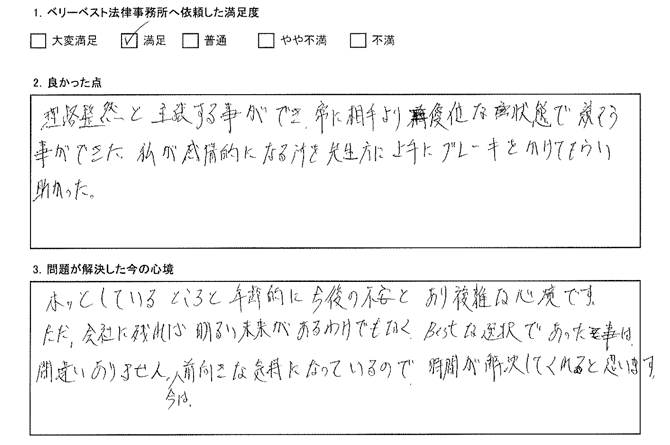 1. ベリーベスト法律事務所へ依頼した満足度
大変満足 満足 普通 やや不満 不満
2. 良かった点
理路整然と主張する事ができ、常に相手より優位な状態で戦う
事ができた。私が感情的になる所を先生方に上手にブレーキをかけてもらい
助かった。
3. 問題が解決した今の心境
ホッとしているところと年齢的に今後の不安とあり複雑な心境です。
ただ、会社に残れば明るい未来があるわけでもなく、Bestな選択であった事は、
間違いありません。今は、前向きな気持になっているので、時間が解決してくれると思います